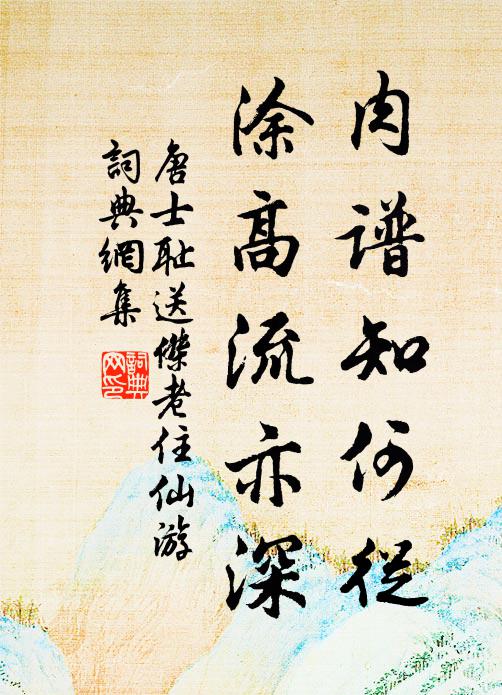 肉谱知何從
涂高流亦深
唐士耻送傑老住仙游
詞典網集
詞典网印